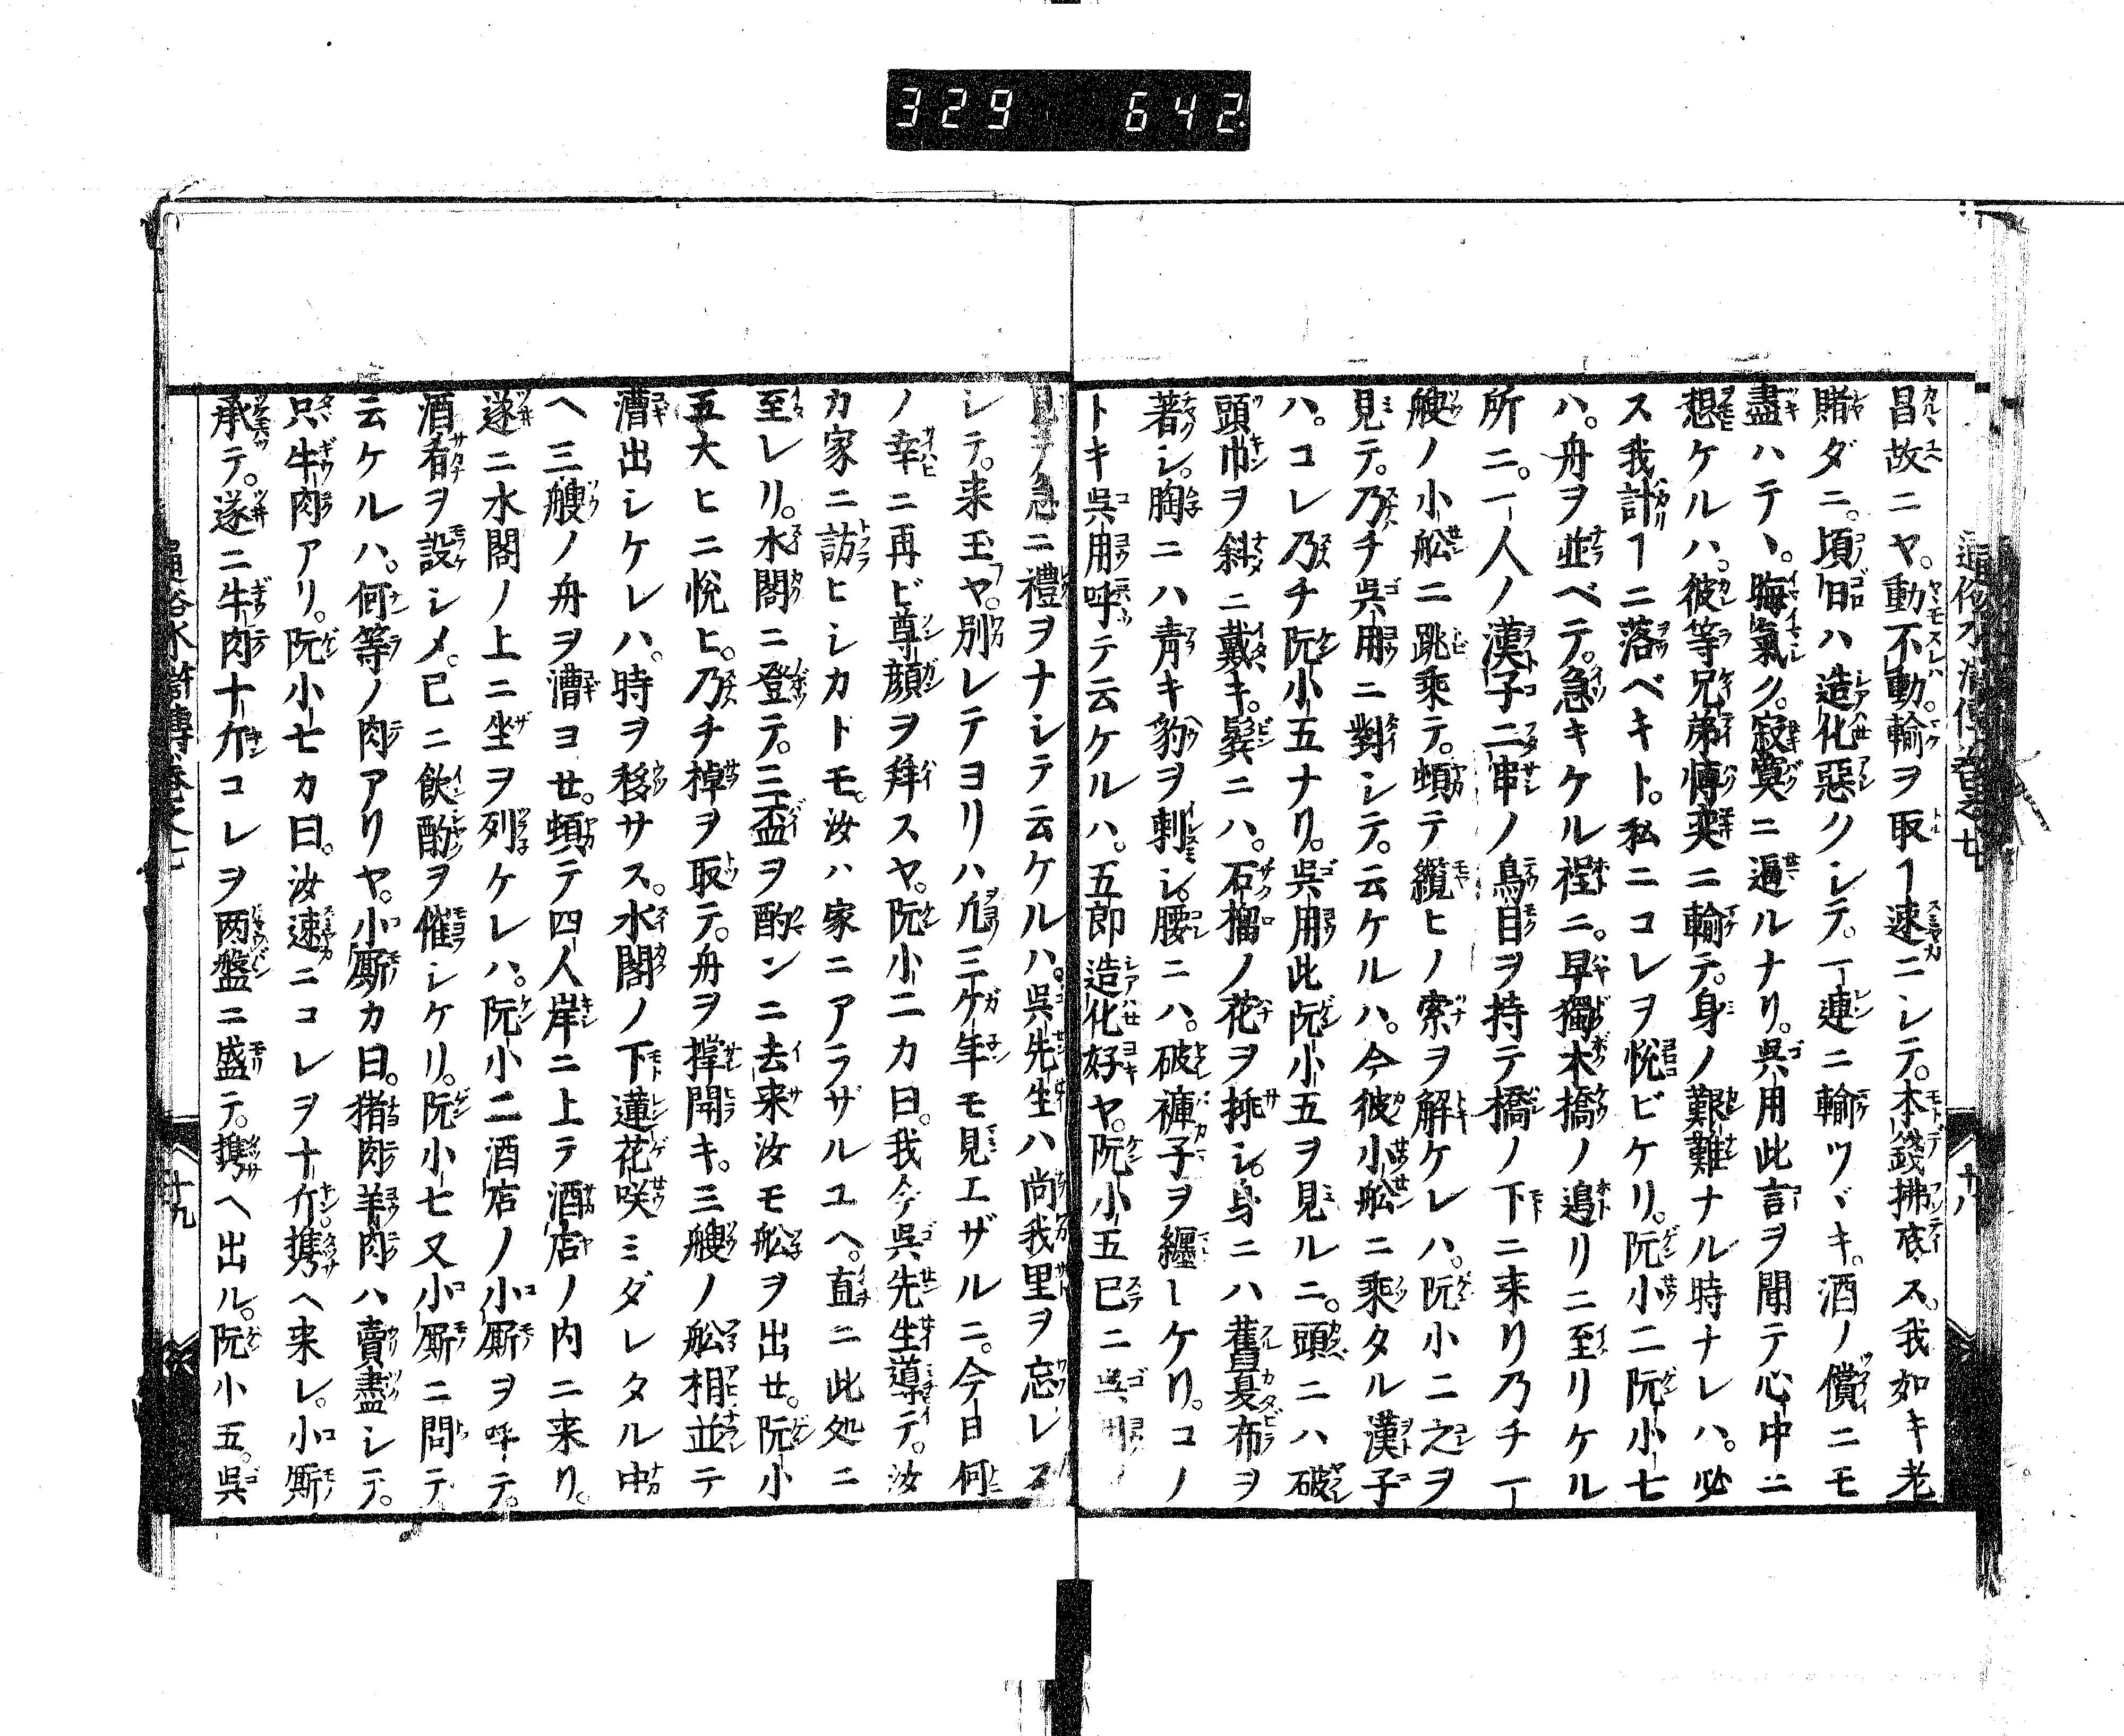 329 642
昌故ニヤ。動不動。輸ヲ取ヿ速ニシテ。本錢拂底ス。我如キ老
賭ダニ。頃日ハ造化惡クシテ。一連ニ輸ツヾキ。酒ノ償ニモ
盡ハテヽ。晦氣ク。寂寞ニ過ルナリ。呉用此言ヲ聞テ心中ニ
想ケルハ。彼等兄弟慱奕ニ輸テ。身ノ艱難ナル時ナレハ。必
ス我計ヿニ落ベキト。私ニコレヲ悦ビケリ。阮小二阮小七
ハ。舟ヲ並ベテ。急キケル程ニ。早獨木橋ノ邉リニ至リケル
所ニ。一人ノ漢子二串ノ鳥目ヲ持テ橋ノ下ニ来リ乃チ一
艘ノ小舩ニ跳乘テ。頓テ纜ヒノ索ヲ解ケレハ。阮小二之ヲ
見テ。乃チ呉用ニ對シテ。云ケルハ。今彼小舩ニ乘タル漢子
ハ。コレ乃チ阮小五ナリ。呉用此阮小五ヲ見ルニ。頭ニハ破
頭巾ヲ斜ニ戴キ。鬂ニハ。石榴ノ花ヲ挿シ。身ニハ舊夏布ヲ
著シ。胸ニハ青キ豹ヲ刺シ。腰ニハ。破褲子ヲ纏ーケリ。コノ
トキ呉用呼テ云ケルハ。五郎造化好ヤ。阮小五已ニ呉用
見テ急ニ禮ヲナシテ云ケルハ。呉先生ハ尚我里ヲ忘レス
シテ。来玉フヤ。別レテヨリハ凢三ケ年モ見エザルニ。今日何
ノ幸ニ再ビ尊顔ヲ拜スヤ。阮小二カ曰。我今呉先生導テ。汝
カ家ニ訪ヒシカトモ。汝ハ家ニアラザルユヘ。直ニ此処ニ
至レリ。水閣ニ登テ。三盃ヲ酌ンニ去来汝モ舩ヲ出セ。阮小
五大ヒニ悦ヒ。乃チ棹ヲ取テ。舟ヲ撑開キ。三艘ノ舩相並テ
漕出シケレハ。時ヲ移サス。水閣ノ下蓮花咲ミダレタル中
ヘ三艘ノ舟ヲ漕ヨセ。頓テ四人岸ニ上テ酒店ノ内ニ来リ。
遂ニ水閣ノ上ニ坐ヲ列ケレハ。阮小二酒店ノ小厮ヲ呼テ。
酒肴ヲ設シメ。已ニ飲酌ヲ催シケリ。阮小七又小厮ニ問テ
云ケルハ。何等ノ肉アリヤ。小厮カ曰。猪肉羊肉ハ賣盡シテ。
只牛肉アリ。阮小七カ曰。汝速ニコレヲ十斤携ヘ来レ。小厮
承テ。遂ニ牛肉十斤コレヲ两盤ニ盛テ。携ヘ出ル。阮小五。呉
通俗水滸傳巻之七
十九
十八